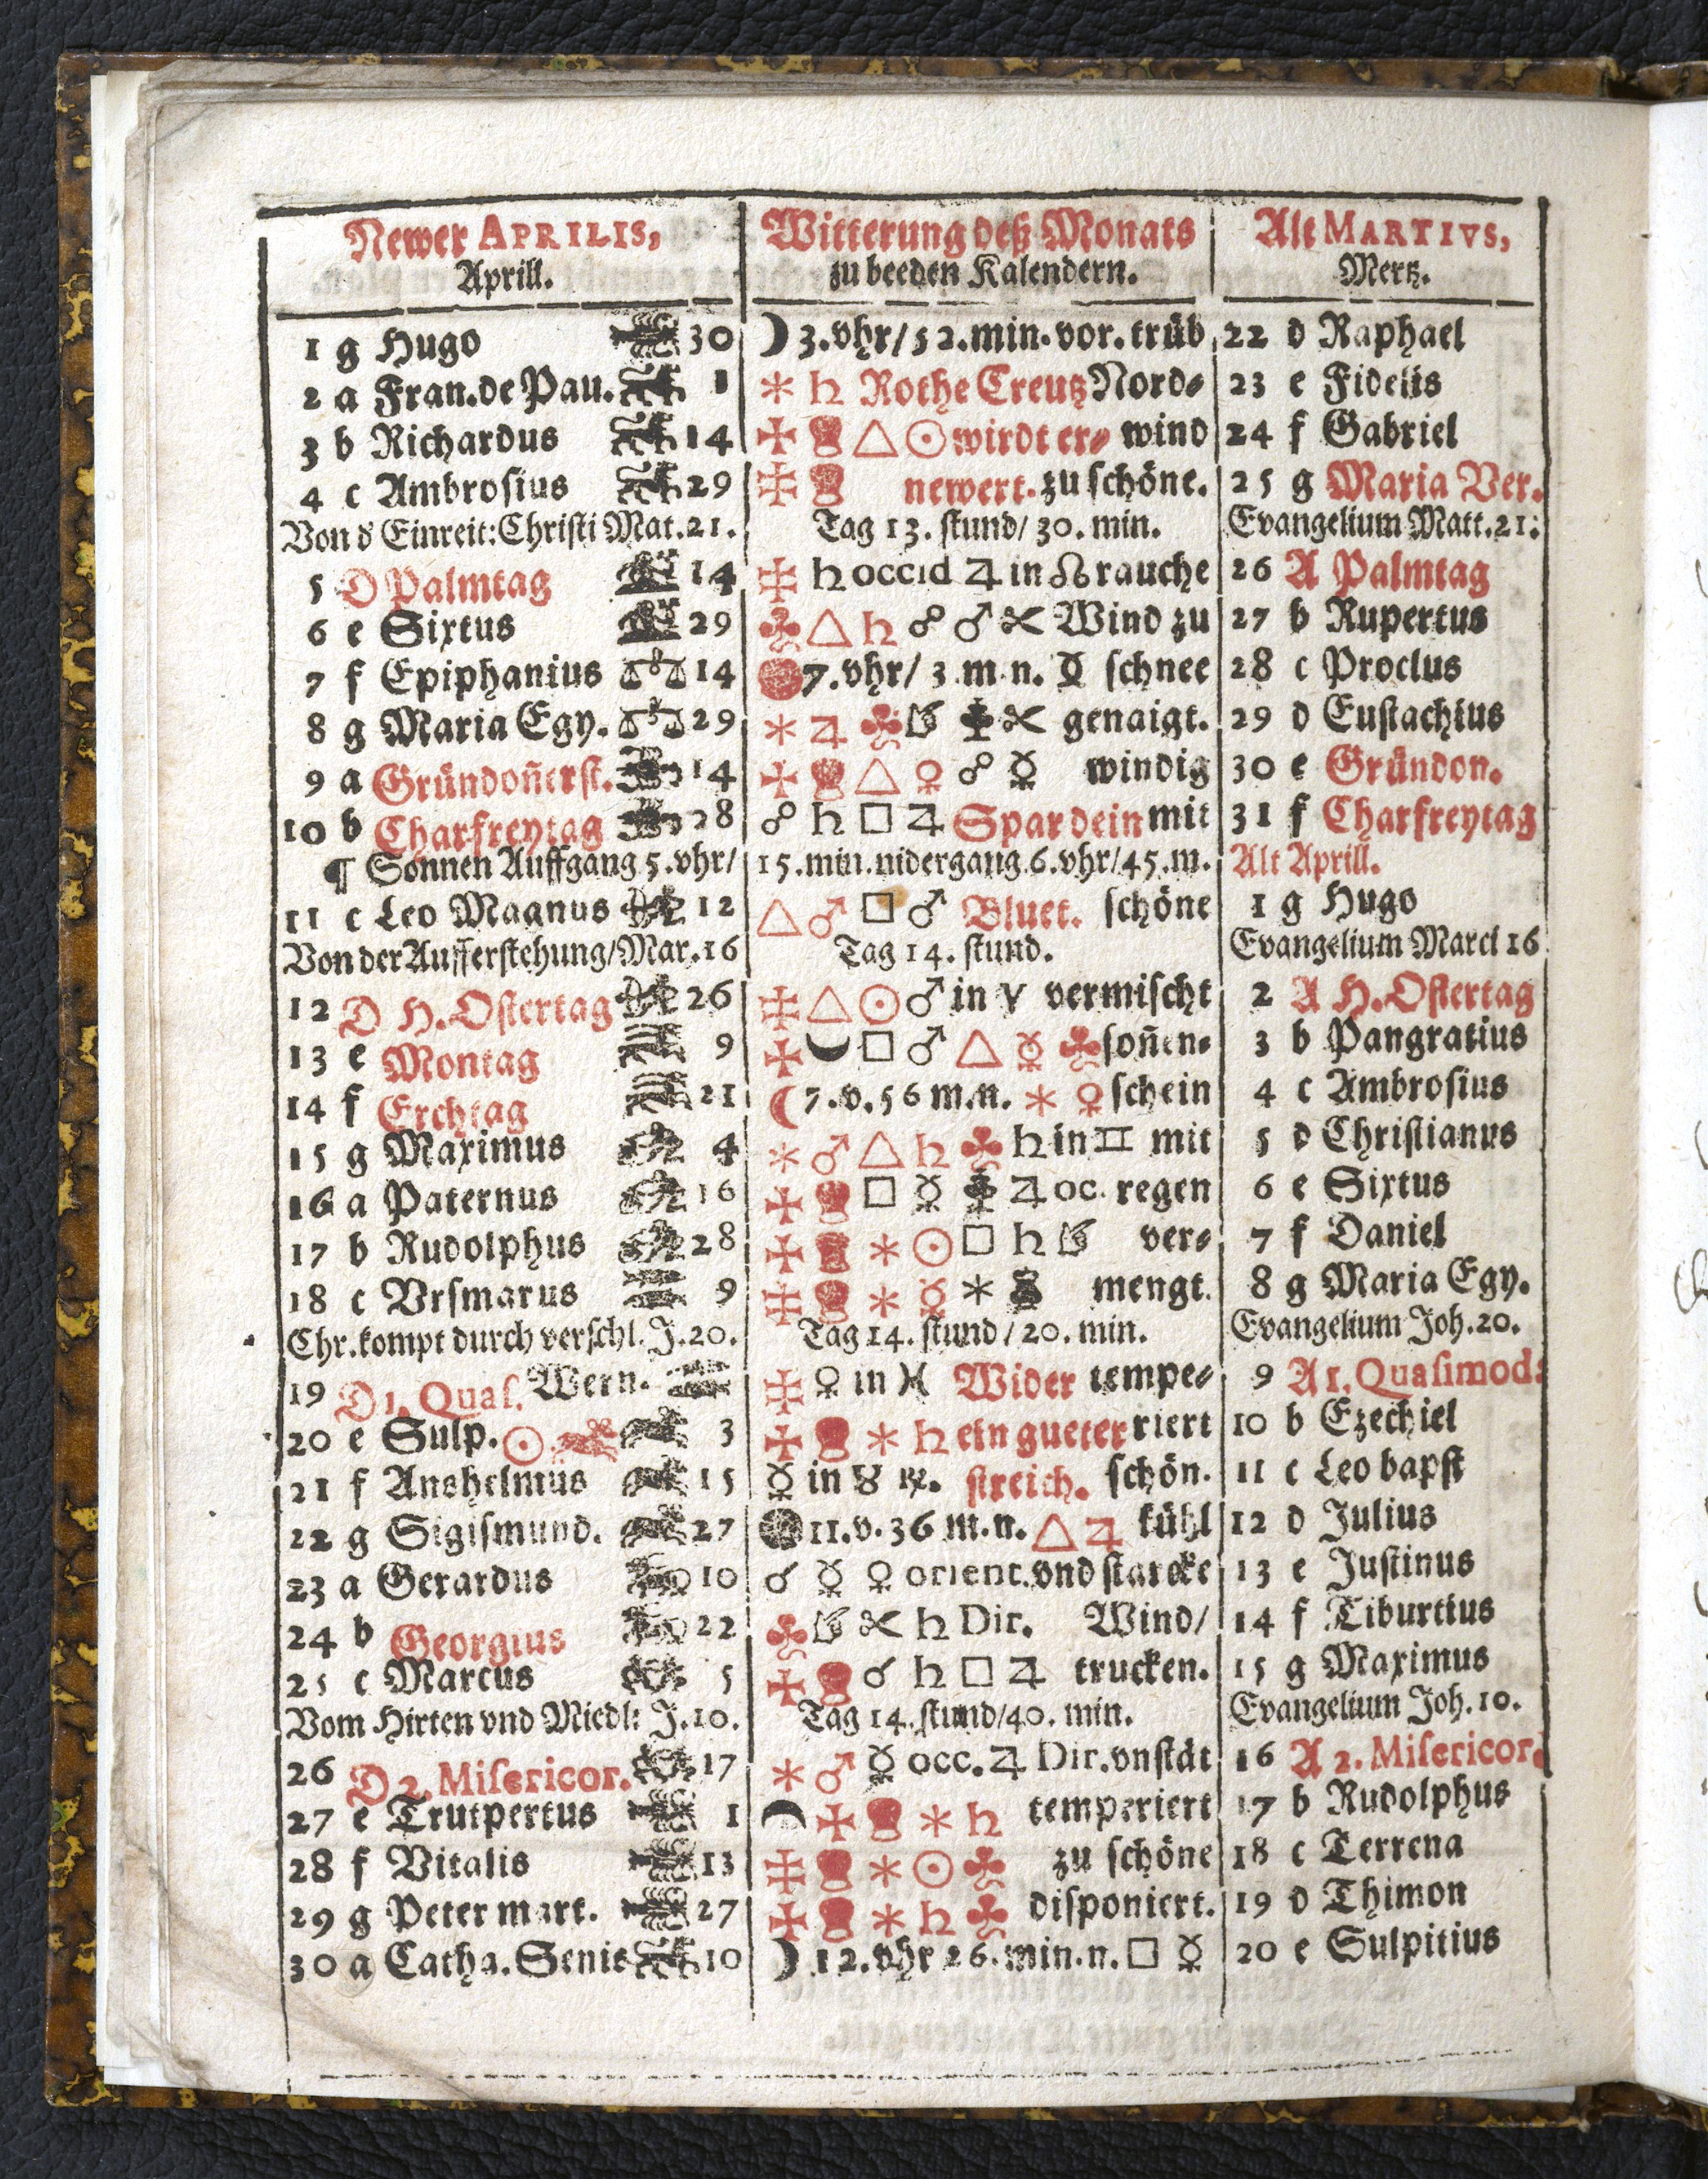 Newer APRILIS, Witterung deß Monats Alt MARTIVS,
Aprill. zu beeden Kalendern. Mertz.
1 g Hugo 30 ☽ 3.vhr/52.min.vor.trüb 22 d Raphael
2 a Fran.de Pau. 1 ✶ ♄ Rothe Creutz Nord- 23 e Fidelis
3 b Richardus 14 ✠ △ ☉ wirdt er- wind 24 f Gabriel
4 c Ambrosius 29 newert. zu schöne. 25 g Maria Ver.
Von d' Einreit: Christi Mat.21. Tag 13. stund/ 30. min. Evangelium Matt.21.
5 D Palmtag 14 ♄ occid ♃ in ☊ rauche 26 A Palmtag
6 e Sixtus 29 △ ♄ ☍ ♂ Wind zu 27 b Rupertus
7 f Epiphanius 14 7.vhr/ 3 m.n. ☿ schnee 28 c Proclus
8 g Maria Egy. 29 ✶ ♃ genaigt. 29 d Eustachius
9 a Gründoñerst. 14 △ ♀ ☍ ☿ windig 30 e Gründon.
10 b Charfreytag 28 ☍ ♄ □ ♃ Spar dein mit 31 f Charfreytag
¶ Sonnen Auffgang 5.vhr/ 15.min.nidergang 6.vhr/45.m. Alt Aprill.
11 c Leo Magnus 12 △ ♂ □ ♂ Bluet. schöne 1 g Hugo
Von der Aufferstehung/Mar.16 Tag 14. stund. Evangelium Marci 16
12 D H. Ostertag 26 △ ☉ ♂ in ♈ vermischt 2 A H. Ostertag
13 e Montag 9 □ ♂ △ ☿ soñen- 3 b Pangratius
14 f Erchtag 21 ☾ 7.v.56 m.n. ✶ ♀ schein 4 c Ambrosius
15 g Maximus 4 ✶ ♂ △ ♄ ♄ in ♊ mit 5 d Christianus
16 a Paternus 16 □ ☿ ♃ oc. regen 6 e Sixtus
17 b Rudolphus 28 ✶ ☉ □ ♄ ver- 7 f Daniel
18 c Vrsmarus 9 ✶ ☿ ✶ mengt. 8 g Maria Egy.
Chr. kompt durch verschl. J.20. Tag 14. stund / 20. min. Evangelium Joh.20.
19 D 1. Quas. Wern. ♀ in ♓ Wider tempe- 9 A 1. Quasimod:
20 e Sulp. ☉ 3 ✶ ♄ ein gueter riert 10 b Ezechiel
21 f Anshelmus 15 ☿ in ♉ ℞. streich. schön. 11 c Leo bapst
22 g Sigismund. 27 11.v.36 m.n. △ ♃ kühl 12 d Julius
23 a Gerardus 10 ☌ ☿ ♀ orient. vnd starcke 13 e Justinus
24 b Georgius 22 ♄ Dir. Wind/ 14 f Tiburtius
25 c Marcus 5 ☌ ♄ □ ♃ trucken. 15 g Maximus
Vom Hirten vnd Miedl: J.10. Tag 14. stund/40. min. Evangelium Joh. 10.
26 D 2. Misericor. 17 ✶ ♂ ☿ occ. ♃ Dir. vnstät 16 A 2. Misericor.
27 e Trutpertus 1 ✶ ♄ temperiert 17 b Rudolphus
28 f Vitalis 13 ✶ ☉ zu schöne 18 c Terrena
29 g Peter mart. 27 ✶ ♄ disponiert. 19 d Thimon
30 a Catha. Senis 10 ☽ 12.vhr 26.min.n. □ ☿ 20 e Sulpitius